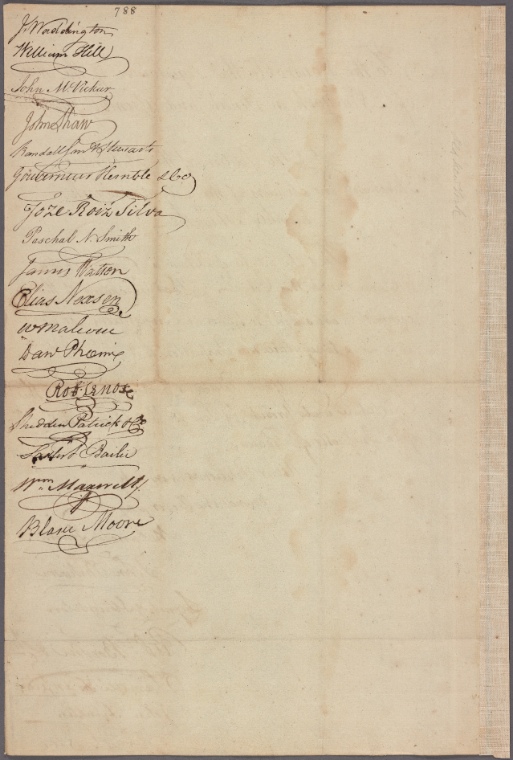 788
J. Waddington
William Hill
John McVickar
John Shaw
Randall Son & Stewarts
Gouverneur Kemble & Co
Joze Roiz Silva
Paschal N. Smith
James Watson
Elias Nexsen
Wm Malcom
Dan Phoenix
Robt Lenox
Shedden Patrick & Co
Bailie
Wm Maxwell
Blase Moore